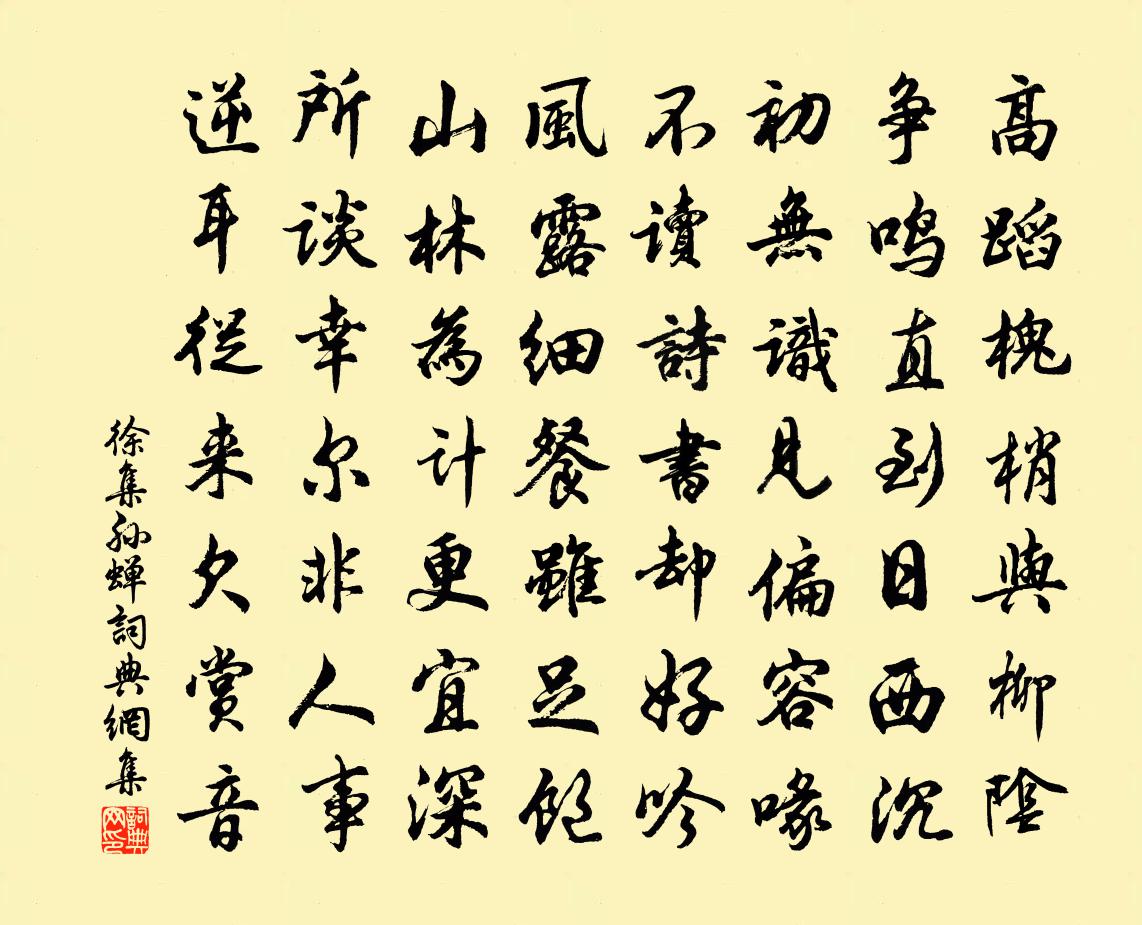 高蹈槐梢與柳陰
争鸣直到日西沉
初無識見偏容喙
不讀詩書却好吟
風露细餐雖足飽
山林為计更宜深
所谈幸尔非人事
逆耳從来欠赏音
徐集孙蝉詞典網集
詞典网印